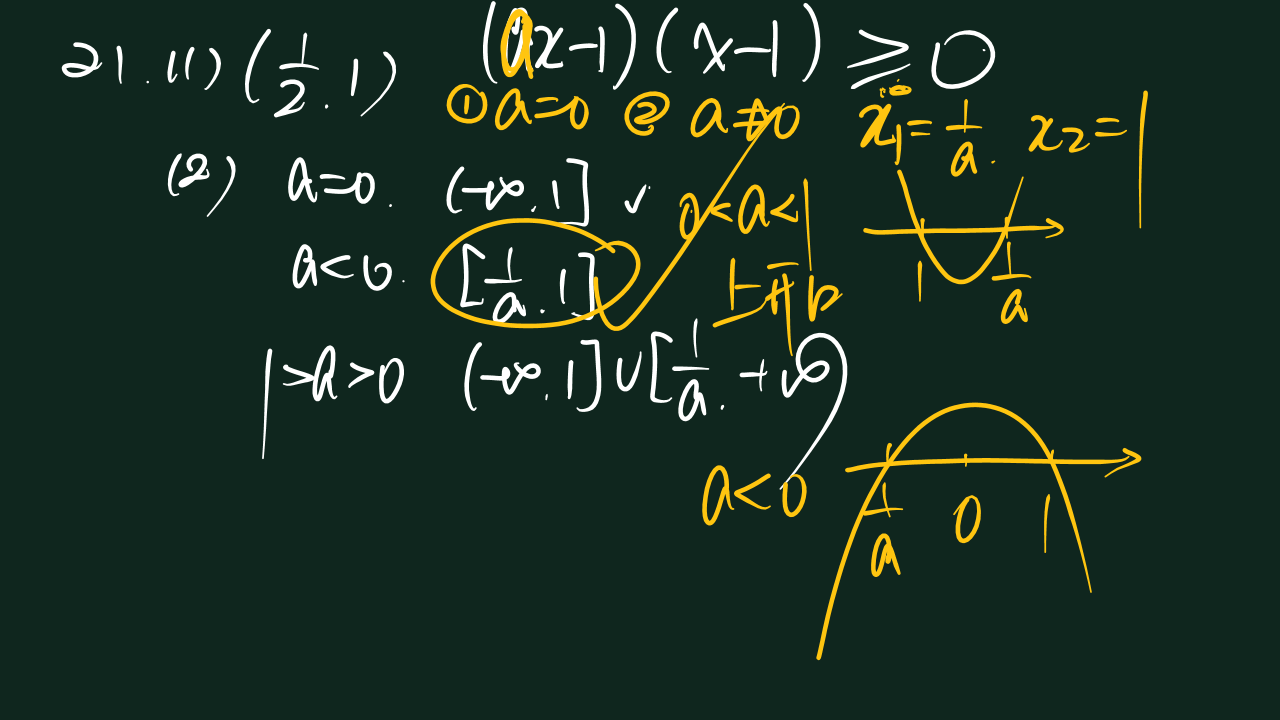 21.(1) (1/2, 1) (ax-1)(x-1) ≥ 0
① a=0 ② a≠0 x₁=1/a. x₂=1
(2) a=0. (-∞, 1] ✓ 0<a<1
a<0. [1/a, 1]
1 1/a
1>a>0 (-∞, 1]∪[1/a, +∞
a<0
1/a 0 1